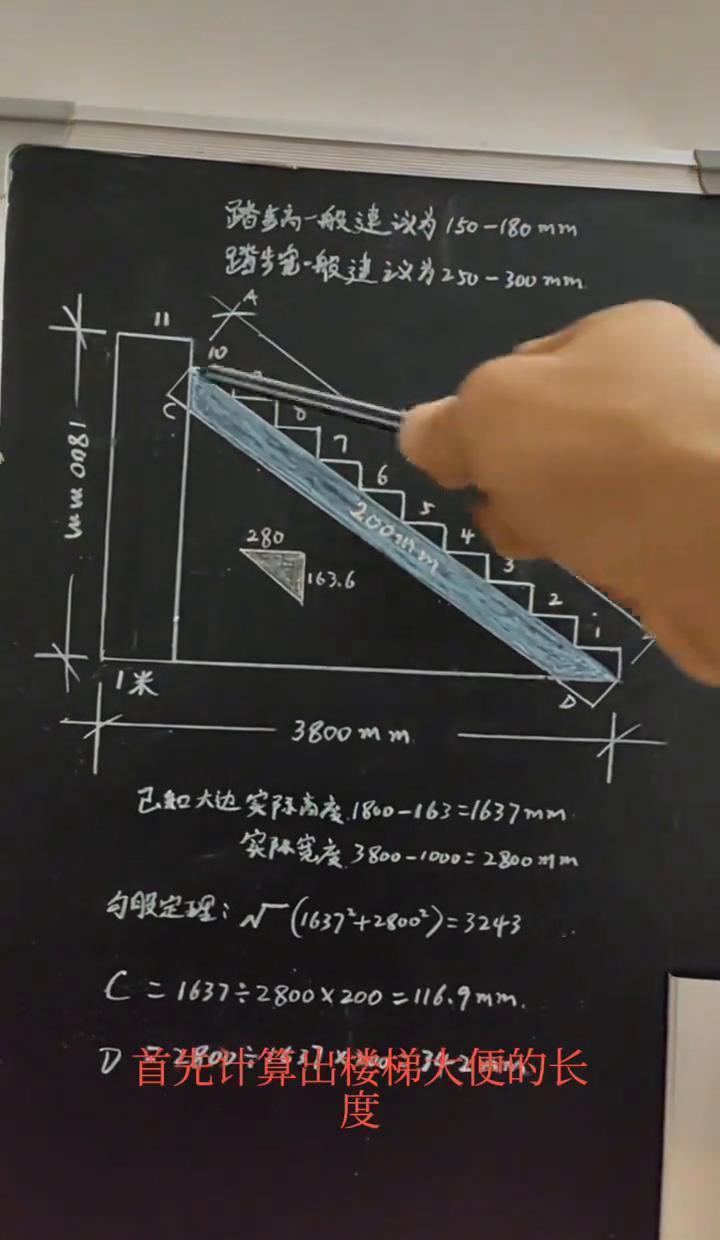 踏步高一般建议为150-180mm
踏步宽一般建议为250-300mm
A
11
10
C
8
7
6
5
4
3
2
1
1800mm
200mm
280
163.6
D
1米
3800mm
已知大边实际高度1800-163=1637mm
实际宽度3800-1000=2800mm
勾股定理:√(1637²+2800²)=3243
C=1637÷2800×200=116.9mm.
D=2800÷1637×200=342mm
首先计算出楼梯大便的长
度